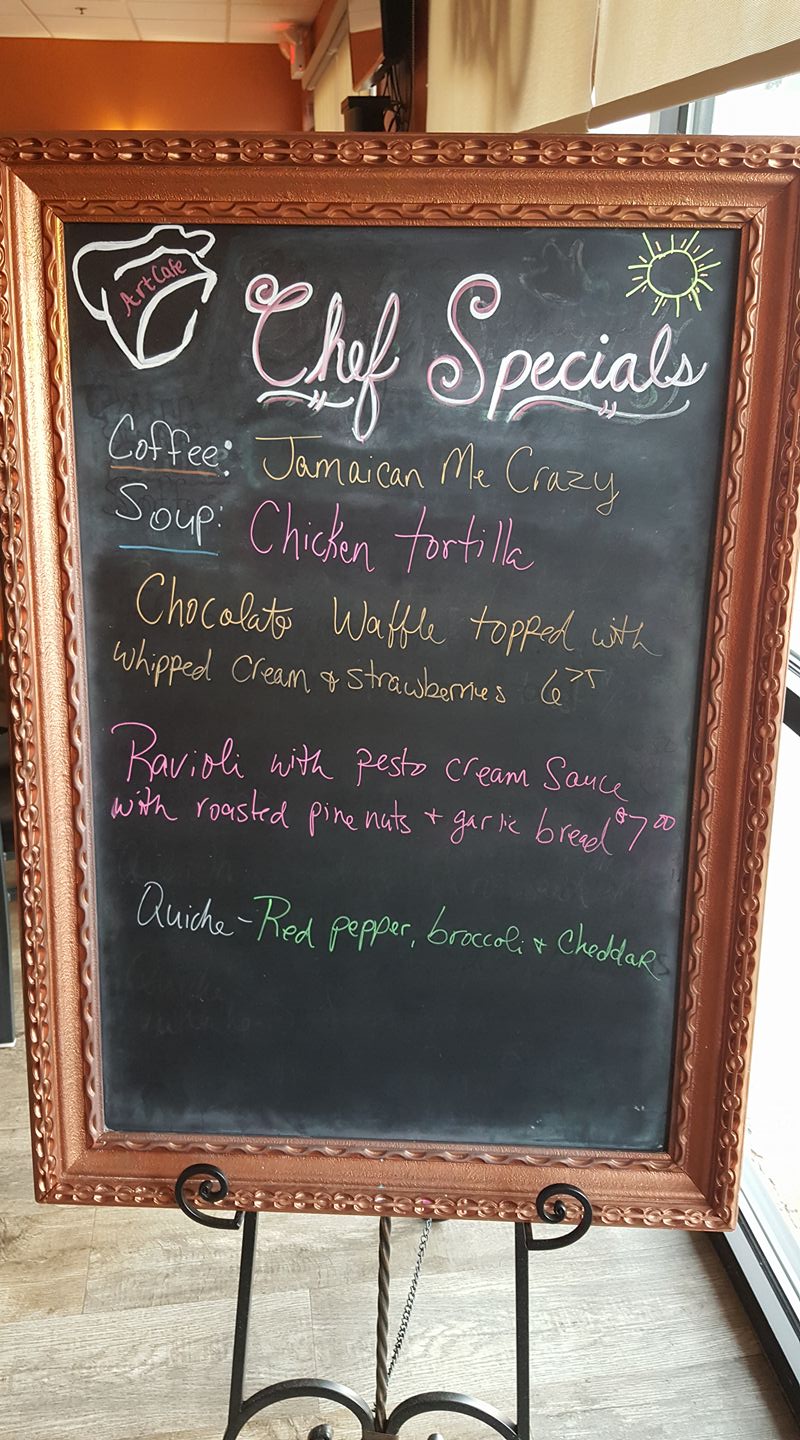 ArtCafe
Chef Specials
Coffee: Jamaican Me Crazy
Soup: Chicken tortilla
Chocolate Waffle topped with
whipped cream & strawberries 6⁷⁵
Ravioli with pesto cream sauce
with roasted pine nuts + garlic bread $7⁰⁰
Quiche - Red pepper, broccoli & Cheddar